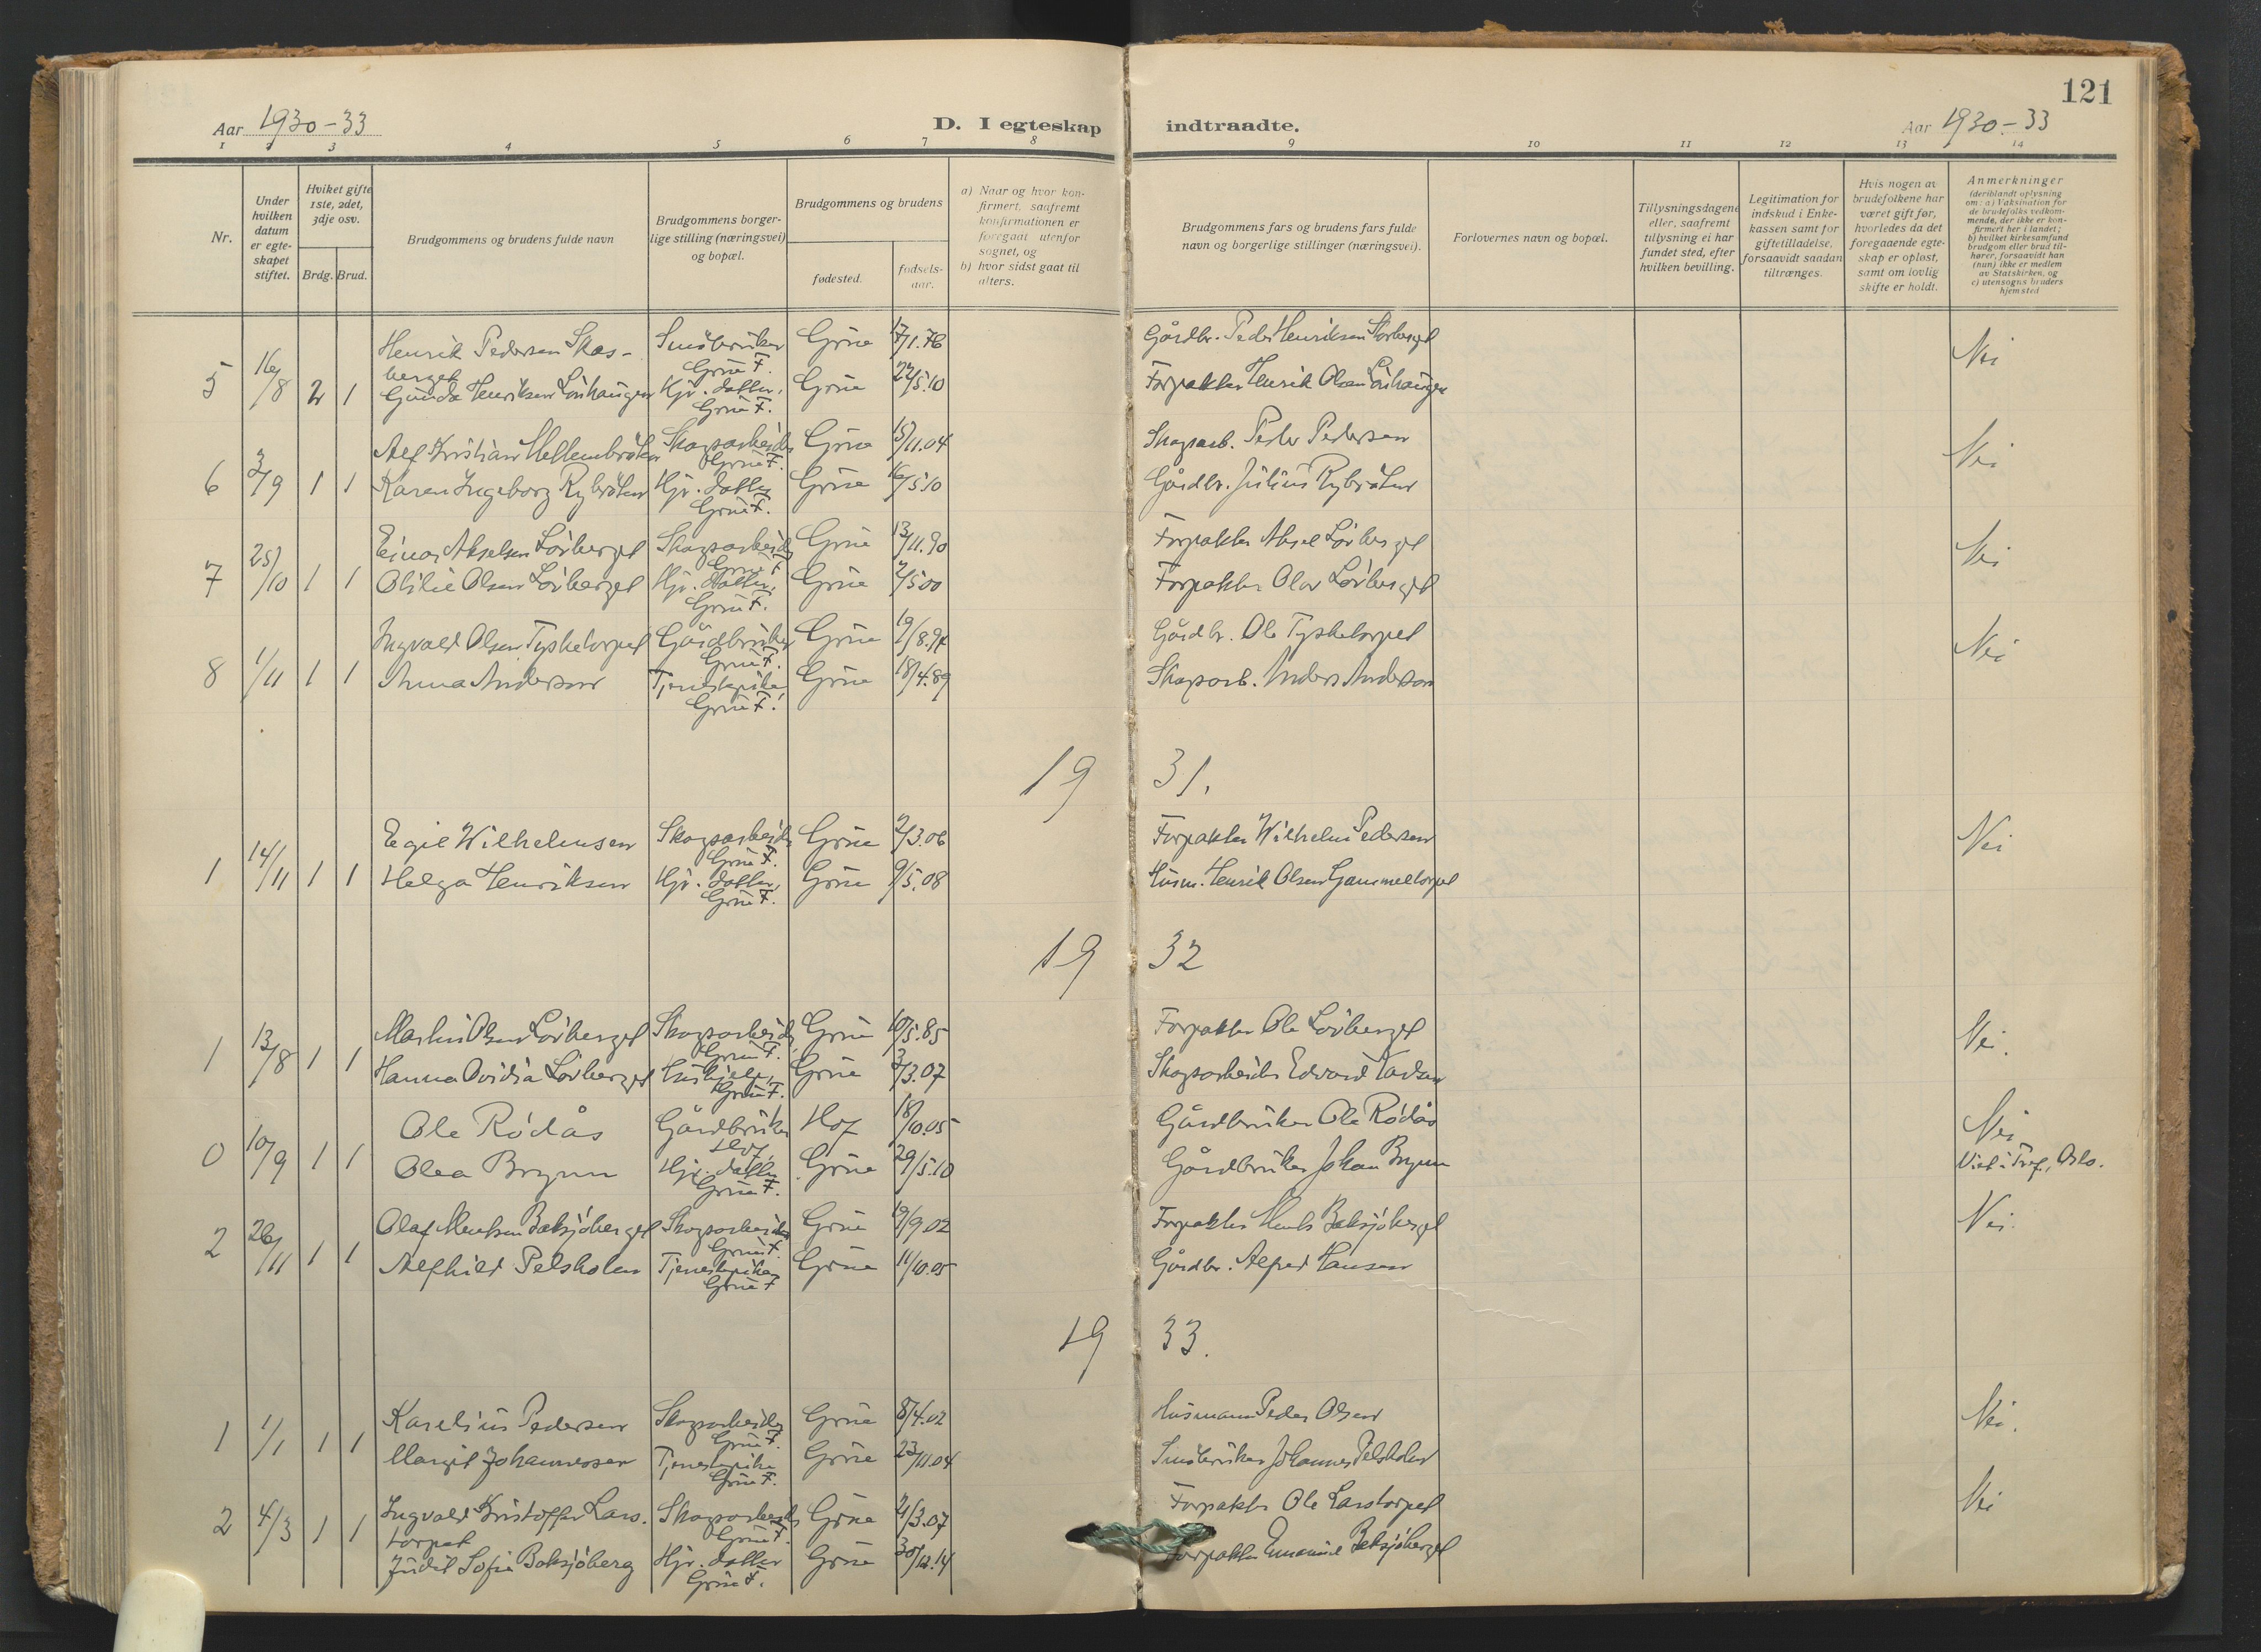 121
Aar 1930-33
D. I egteskap indtraadte.
Aar 1930-33
1 2 3 4 5 6 7 8 9 10 11 12 13 14
Nr.
Under hvilken datum er egteskapet stiftet.
Hvilket gifte 1ste, 2det, 3dje osv.
Brdg. Brud.
Brudgommens og brudens fulde navn
Brudgommens borgerlige stilling (næringsvei) og bopæl.
Brudgommens og brudens
fødested.
fødselsaar.
a) Naar og hvor konfirmert, saafremt konfirmationen er foregaat utenfor sognet, og
b) hvor sidst gaat til alters.
Brudgommens fars og brudens fars fulde navn og borgerlige stillinger (næringsvei).
Forlovernes navn og bopæl.
Tillysningsdagene eller, saafremt tillysning ei har fundet sted, efter hvilken bevilling.
Legitimation for indskud i Enkekassen samt for giftetilladelse, forsaavidt saadan tiltrænges.
Hvis nogen av brudefolkene har været gift før, hvorledes da det foregaaende egteskap er opløst, samt om lovlig skifte er holdt.
Anmerkninger (deriblandt oplysning om: a) Vaksination for de brudefolks vedkommende, der ikke er konfirmert her i landet; b) hvilket kirkesamfund brudgom eller brud tilhører, forsaavidt han (hun) ikke er medlem av Statskirken, og c) utensogns bruders hjemsted
5 16/8 2 1
Henrik Pedersen Skasberget Småbruker Grue F. Grue 17/1.76 Gårdbr. Peder Henriksen Skasberget Nei
Gunda Henriksen Lövhaugen Hjv. datter, Grue F. Grue 22/5.10 Forpakter Henrik Olsen Lövhaugen
6 3/9 1 1
Alf Kristian Mellembråten Skogsarbeider Grue F. Grue 15/11.04 Skogsarb. Peder Pedersen Nei
Karen Ingeborg Rybråten Hjv. datter Grue F. Grue 16/5.10 Gårdbr. Julius Rybråten
7 25/10 1 1
Einar Akselsen Lövberget Skogsarbeider Grue F. Grue 13/11.90 Forpakter Aksel Lövberget Nei
Otilie Olsen Lövberget Hjv. datter, Grue F. Grue 2/5 00 Forpakter Olav Lövberget
8 1/11 1 1
Ingvald Olsen Tysketorpet Gårdbruker Grue F. Grue 19/8.94 Gårdbr. Ole Tysketorpet Nei
Anna Andersen Tjenestepike Grue F. Grue 18/4.89 Skogsarb. Anders Andersen
19 31.
1 14/11 1 1
Egil Wilhelmsen Skogsarbeider Grue F. Grue 2/3.06 Forpakter Wilhelm Pedersen Nei
Helga Henriksen Hjv. datter, Grue F. Grue 9/5.08 Husm. Henrik Olsen Gammeltorpet
19 32
1 13/8 1 1
Martin Olsen Lövberget Skogsarbeider, Grue F. Grue 10/5.85 Forpakter Ole Lövberget Nei.
Hanna Ovidia Lövberget Hushjelp, Grue F. Grue 3/3.07 Skogsarbeider Edvard
0 10/9 1 1
Ole Rödås Gårdbruker Hof Hof 18/10.05 Gårdbruker Ole Rödås Nei
Olea Brynn Hjv. datter Grue F. Grue 29/5.10 Gårdbruker Johan Brynn Viet i Tref., Oslo.
2 26/11 1 1
Olaf Mentsen Baksjöberget Skogsarbeider Grue F. Grue 19/9.02 Forpakter Ments Baksjöberget Nei.
Alfhild Pelsholen Tjenestepike, Grue F Grue 11/10.05 Gårdbr. Alfred Hansen
19 33.
1 1/1 1 1
Karelius Pedersen Skogsarbeider Grue F. Grue 8/4.02 Husmann Peder Olsen Nei.
Margit Johannessen Tjenestepike Grue F. Grue 23/11.04 Småbruker Johannes Pelsholen
2 4/3 1 1
Ingvald Kristoffer Larstorpet Skogsarbeider Grue F. Grue 21/3.07 Forpakter Ole Larstorpet Nei
Judit Sofie Baksjöberg Hjv. datter Grue F. Grue 30/12.14 Forpakter Emanuel Baksjöberget